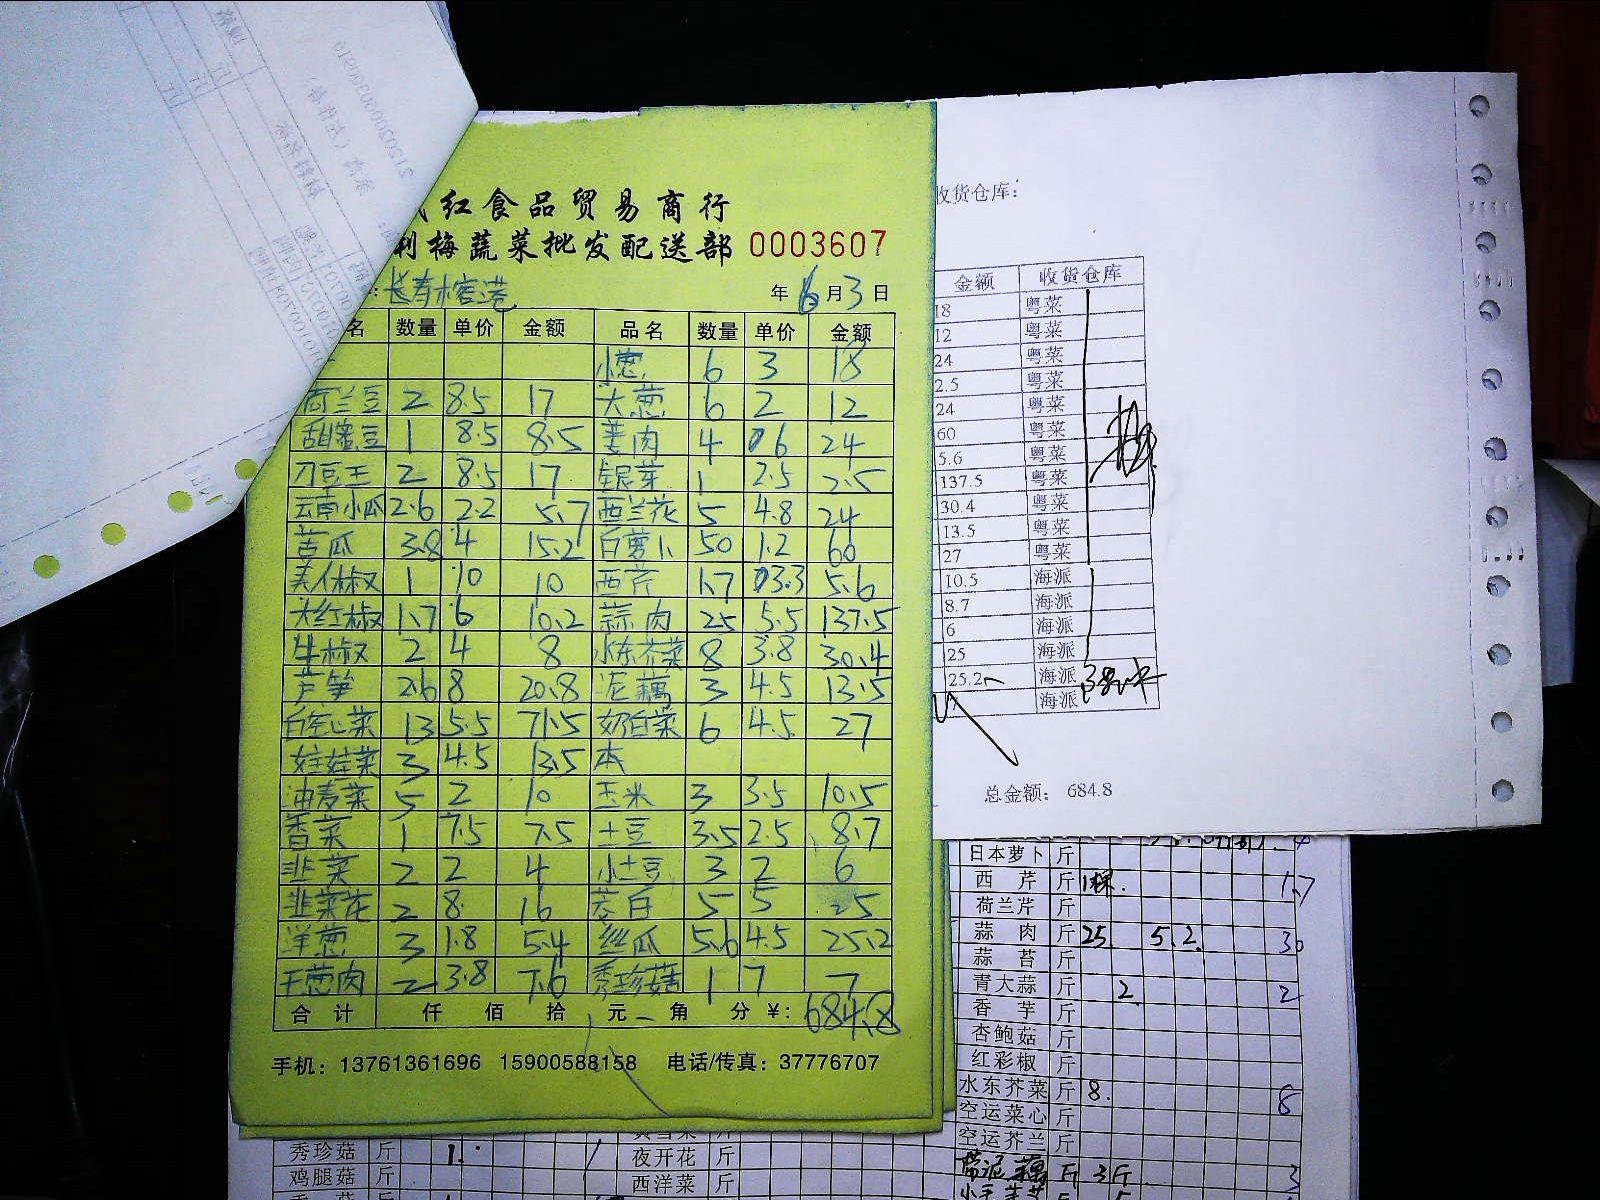 红食品贸易商行
利梅蔬菜批发配送部 0003607
长寿榕港 年 6月3日
名 数量 单价 金额 品名 数量 单价 金额
小葱 6 3 18
荷兰豆 2 8.5 17 大葱 6 2 12
甜蜜豆 1 8.5 8.5 姜肉 4 6 24
刀豆王 2 8.5 17 银芽 1 2.5 2.5
云南小瓜 2.6 2.2 5.7 西兰花 5 4.8 24
苦瓜 3.8 4 15.2 白萝卜 50 1.2 60
美人椒 1 10 10 西芹 1.7 3.3 5.6
大红椒 1.7 6 10.2 蒜肉 25 5.5 137.5
牛椒 2 4 8 水东芥菜 8 3.8 30.4
芦笋 2.6 8 20.8 泥藕 3 4.5 13.5
白空心菜 13 5.5 71.5 奶白菜 6 4.5 27
娃娃菜 3 4.5 13.5 本
油麦菜 5 2 10 玉米 3 3.5 10.5
香菜 1 7.5 7.5 土豆 3.5 2.5 8.7
韭菜 2 2 4 小土豆 3 2 6
韭菜花 2 8 16 茭白 5 5 25
洋葱 3 1.8 5.4 丝瓜 5.6 4.5 25.2
干葱肉 2 3.8 7.6 秀珍菇 1 7 7
合计 仟 佰 拾 元 角 分 ¥: 684.8
手机: 13761361696 15900588158 电话/传真: 37776707
收货仓库:
金额 收货仓库
18 粤菜
12 粤菜
24 粤菜
2.5 粤菜
24 粤菜
60 粤菜
5.6 粤菜
137.5 粤菜
30.4 粤菜
13.5 粤菜
27 粤菜
10.5 海派
8.7 海派
6 海派
25 海派
25.2 海派
海派
总金额: 684.8
日本萝卜 斤
西芹 斤 1棵. 1.7
荷兰芹 斤
蒜肉 斤 25 5.2. 30
蒜苔 斤
青大蒜 斤 2. 2
香芋 斤
杏鲍菇 斤
红彩椒 斤
水东芥菜 斤 8. 8
空运菜心 斤
空运芥兰 斤
带泥藕 斤 3斤 3
秀珍菇 斤 1. 夜开花 斤
鸡腿菇 斤 西洋菜 斤